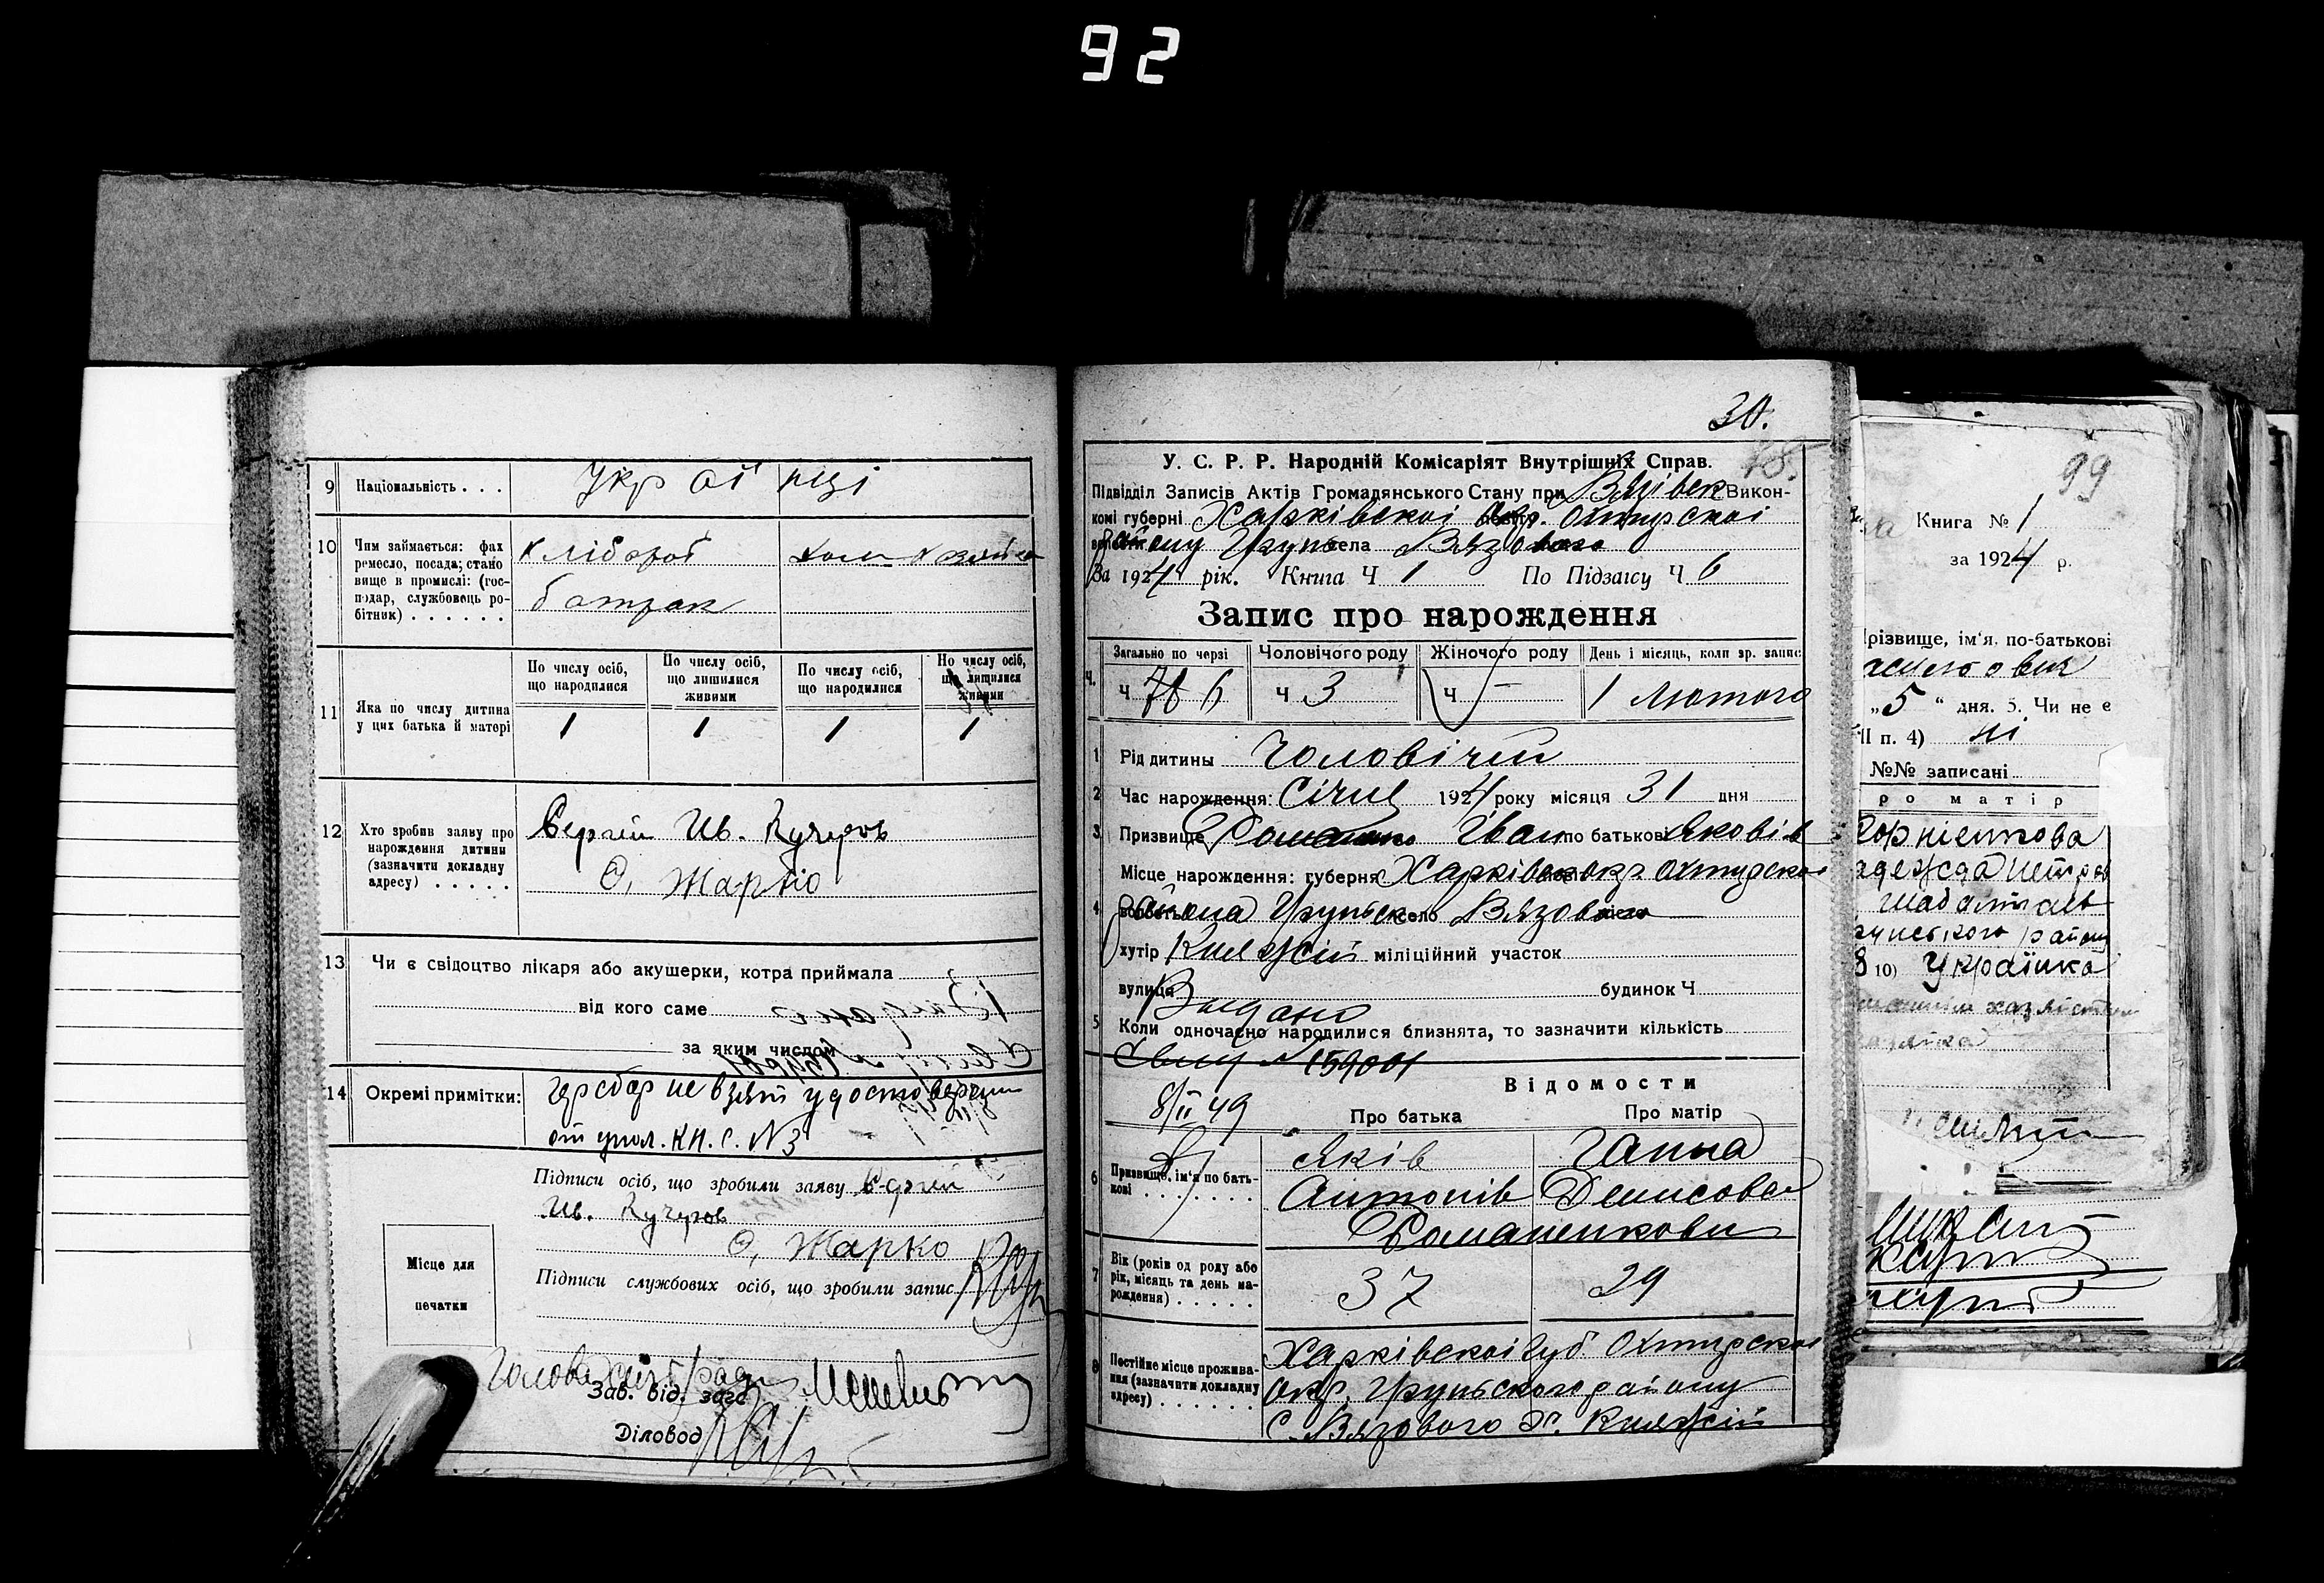 92
9 Національність . . . Українці
10 Чим займається: фах
ремесло, посада; стано
вище в промислі: (гос-
подар, службовець ро-
бітник) . . . . . .
Хлібороб
батрак
11 Яка по числу дитина
у цих батька й матері
По числу осіб,
що народилися
По числу осіб,
що лишилися
живими
По числу осіб,
що народилися
По числу осіб,
що лишилися
живими
1 1 1 1
12 Хто зробив заяву про
нарождення дитини
(зазначити докладну
адресу) . . . . .
Сергій Ив. Кучеров
О, Жарко
13 Чи є свідоцтво лікаря або акушерки, котра приймала
від кого саме
за яким числом
14 Окремі примітки: гербсбор не взят удостоверен
от упол. КН. С. №3
Підписи осіб, що зробили заяву Сергей
Ив. Кучеров
О, Жарко
Підписи службових осіб, що зробили запис
Місце для
печатки
Голова
Зав. від. загс
Діловод
30.
18.
У. С. Р. Р. Народній Комісаріят Внутрішніх Справ.
Підвідділ Записів Актів Громадянського Стану при Вязівск Викон-
комі губерні Харківскоі Окр. Охтирскоі
району Грунь села Вязового
За 1924 рік. Книга Ч 1 По Підзагсу Ч 6
Запис про нарождення
Загально по черзі Чоловічого роду Жіночого роду День і місяць, коли зр. запис
Ч. ч 6 ч 3 ч — 1 Лютого
1 Рід дитины Чоловічий
2 Час нарождення: Січня 1924 року місяця 31 дня
3 Призвище Романенко Іван по батькові Яковів
4 Місце нарождення: губерня Харківск окр. Охтирскоі
района Груньск село Вязове
хутір Княжій міліційний участок
вулиця будинок Ч
Выдано
5 Коли одночасно народилися близнята, то зазначити кількість
Свид № 159001
8/II 49
Відомости
Про батька Про матір
6 Призвище, ім'я по бать-
кові . . . . . . . .
Яків Ганна
Антонів Денисова
Романенкови
7 Вік (років од роду або
рік, місяць та день на-
рождення) . . . . .
37 29
8 Постійне місце прожива-
ння (зазначити докладну
адресу) . . . . . .
Харківскоі губ. Охтирскоі
окр. Груньского району
с. Вязового х. Княжій
99
Книга № 1
за 1924 р.
різвище, ім'я, по-батькові
„5“ дня. 5. Чи не є
II п. 4) ні
№№ записані
ро матір
Корніенкова
10) Українка